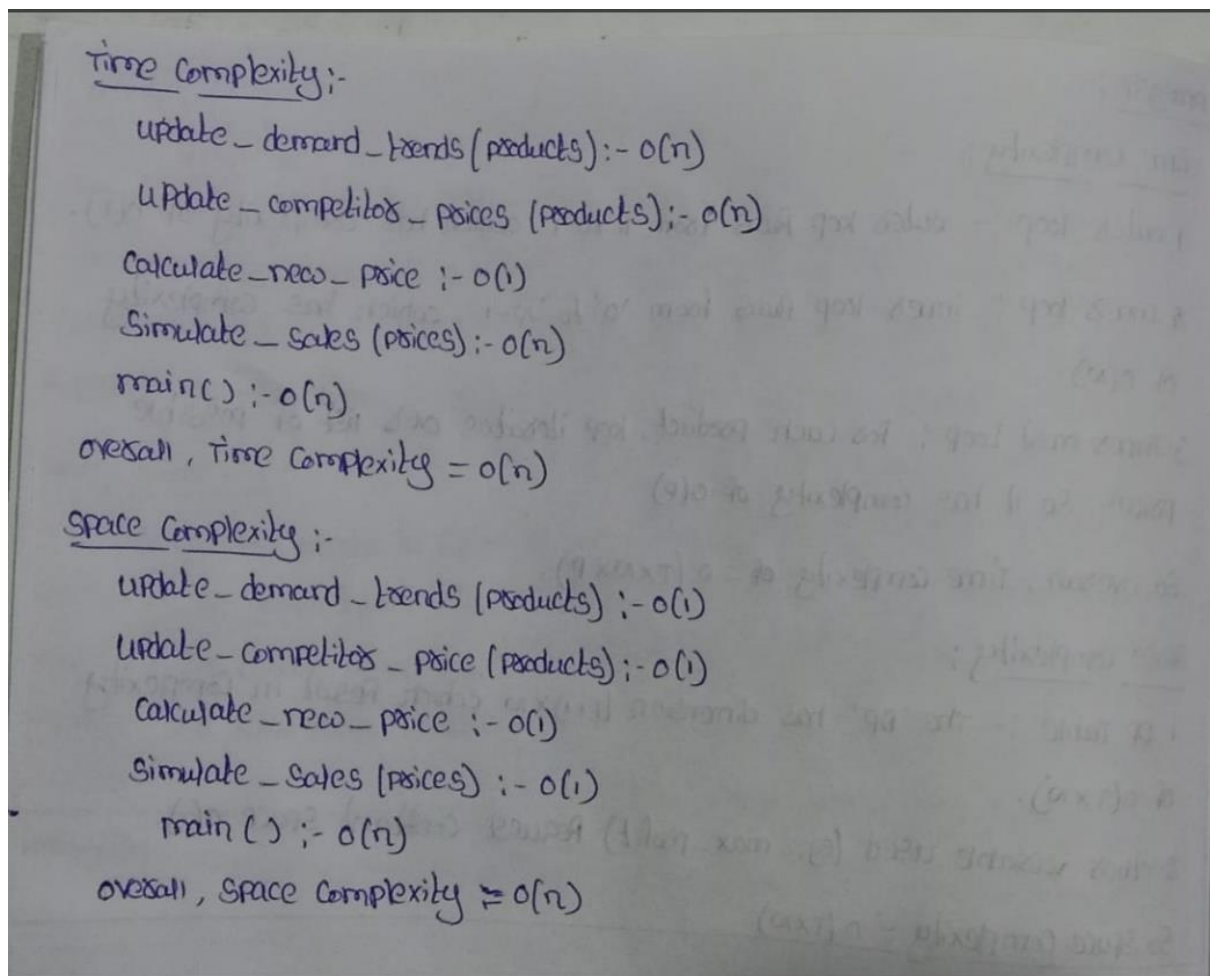 Time Complexity:-
update_demand_trends (products) :- O(n)
update_competitor_prices (products) :- O(n)
calculate_reco_price :- O(1)
Simulate_sales (prices) :- O(n)
main() :- O(n)
overall, Time Complexity = O(n)
Space Complexity :-
update_demand_trends (products) :- O(1)
update_competitor_price (products) :- O(1)
calculate_reco_price :- O(1)
Simulate_sales (prices) :- O(1)
main () :- O(n)
overall, Space Complexity = O(n)